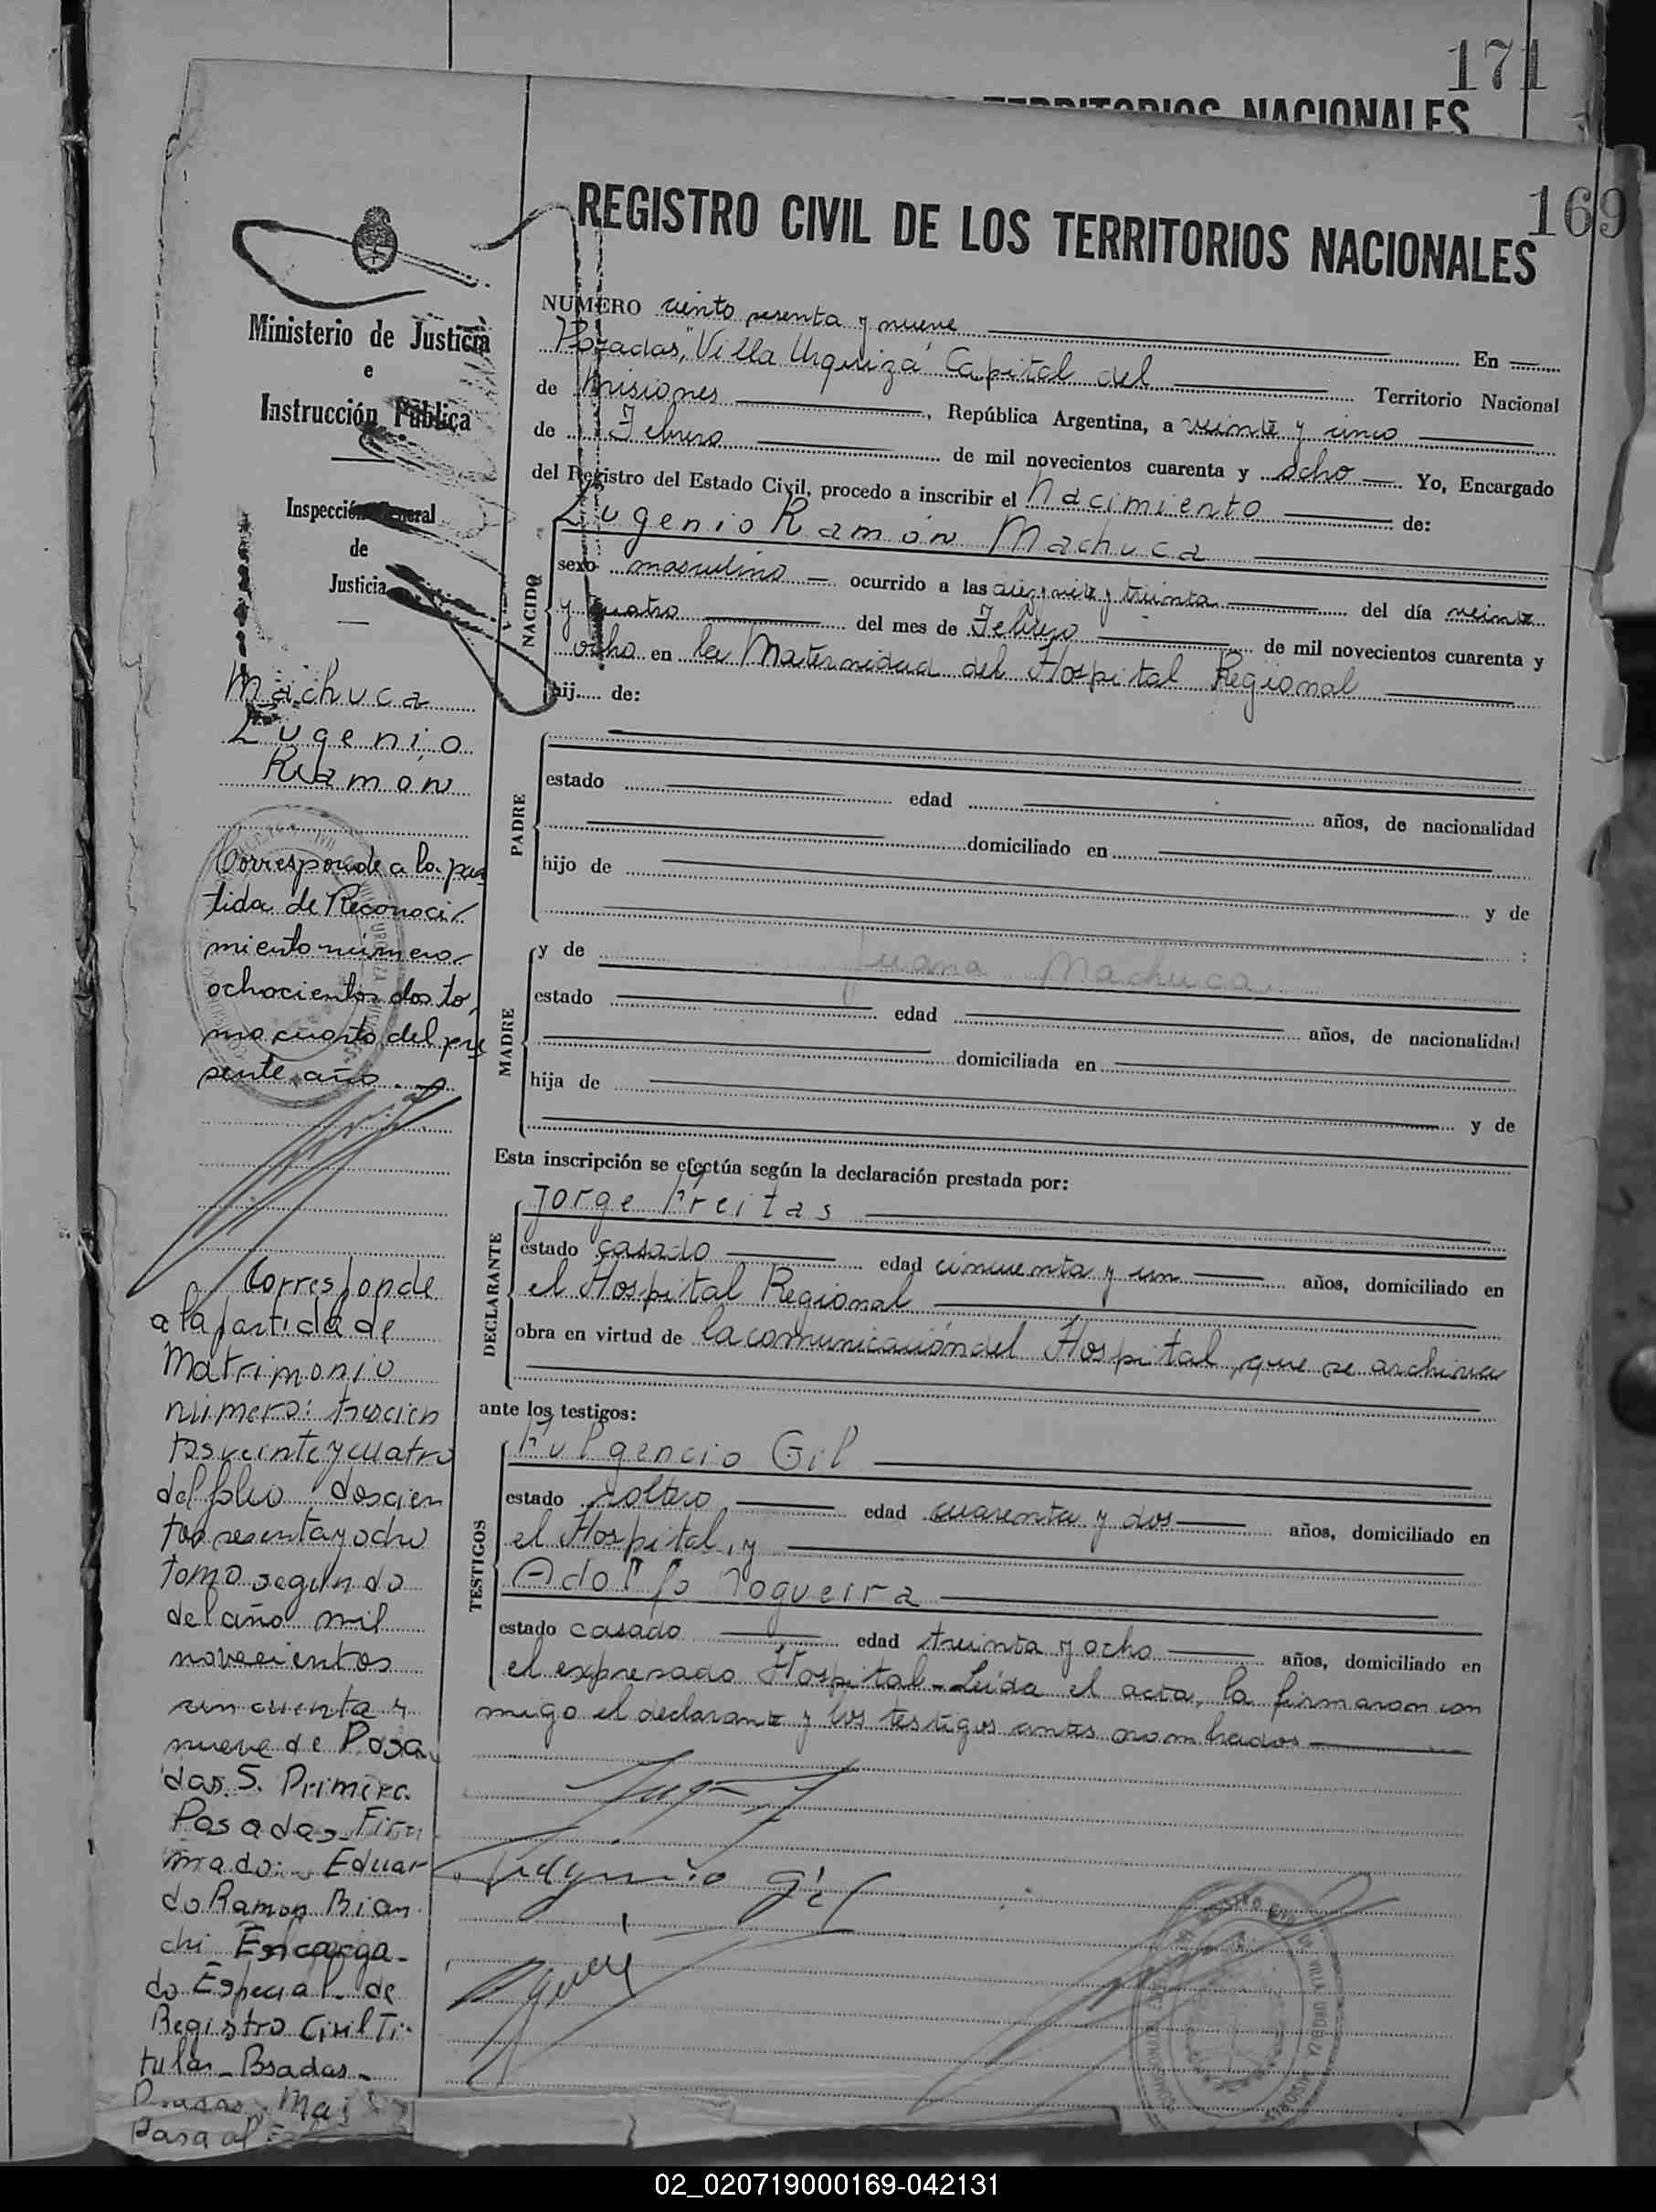 171
TERRITORIOS NACIONALES
169
REGISTRO CIVIL DE LOS TERRITORIOS NACIONALES
Ministerio de Justicia
e
Instrucción Pública
Inspección General
de
Justicia
NUMERO ciento sesenta y nueve En
Posadas, "Villa Urquiza" Capital del Territorio Nacional
de Misiones, República Argentina, a veinte y cinco
de Febrero de mil novecientos cuarenta y ocho Yo, Encargado
del Registro del Estado Civil, procedo a inscribir el nacimiento de:
NACIDO
Eugenio Ramón Machuca
sexo masculino ocurrido a las diez y siete y treinta del día veinte
y cuatro del mes de Febrero de mil novecientos cuarenta y
ocho en la Maternidad del Hospital Regional
hij..... de:
PADRE
estado edad años, de nacionalidad
domiciliado en
hijo de y de
:
MADRE
y de Juana Machuca
estado edad años, de nacionalidad
domiciliada en
hija de y de
Esta inscripción se efectúa según la declaración prestada por:
DECLARANTE
Jorge Freitas
estado casado edad cincuenta y un años, domiciliado en
el Hospital Regional
obra en virtud de la comunicación del Hospital, que se archiva
ante los testigos:
TESTIGOS
Fulgencio Gil
estado soltero edad cuarenta y dos años, domiciliado en
el Hospital, y
Adolfo Nogueira
estado casado edad treinta y ocho años, domiciliado en
el expresado Hospital - Leída el acta, la firmaron con
migo el declarante y los testigos antes nombrados
Machuca
Eugenio
Ramón
Corresponde a la par
tida de Reconoci
miento número
ochocientos dos to
mo cuarto del pre
sente año.
Corresponde
a la partida de
Matrimonio
número: trescien
tos veinte y cuatro
del folio doscien
tos sesenta y ocho
tomo segundo
del año mil
novecientos
cincuenta y
nueve de Posa
das S. Primera
Posadas - Fir
mado: Eduar
do Ramon Bian
chi Encarga-
do Especial de
Registro Civil Ti-
tular - Posadas -
Pasa al
02_020719000169-042131